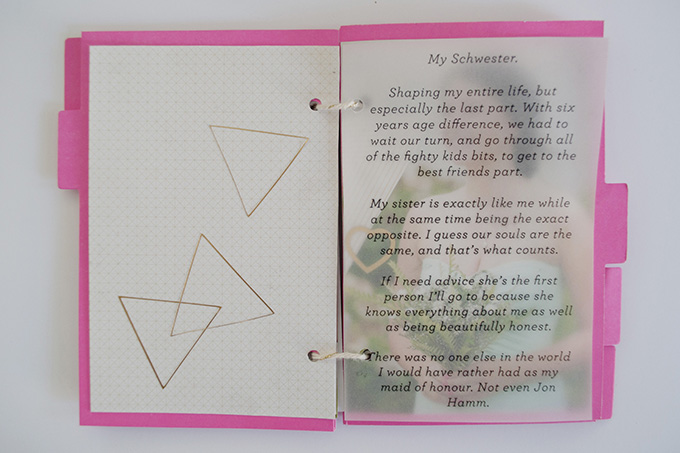 My Schwester.
Shaping my entire life, but
especially the last part. With six
years age difference, we had to
wait our turn, and go through all
of the fighty kids bits, to get to the
best friends part.
My sister is exactly like me while
at the same time being the exact
opposite. I guess our souls are the
same, and that's what counts.
If I need advice she's the first
person I'll go to because she
knows everything about me as well
as being beautifully honest.
There was no one else in the world
I would have rather had as my
maid of honour. Not even Jon
Hamm.